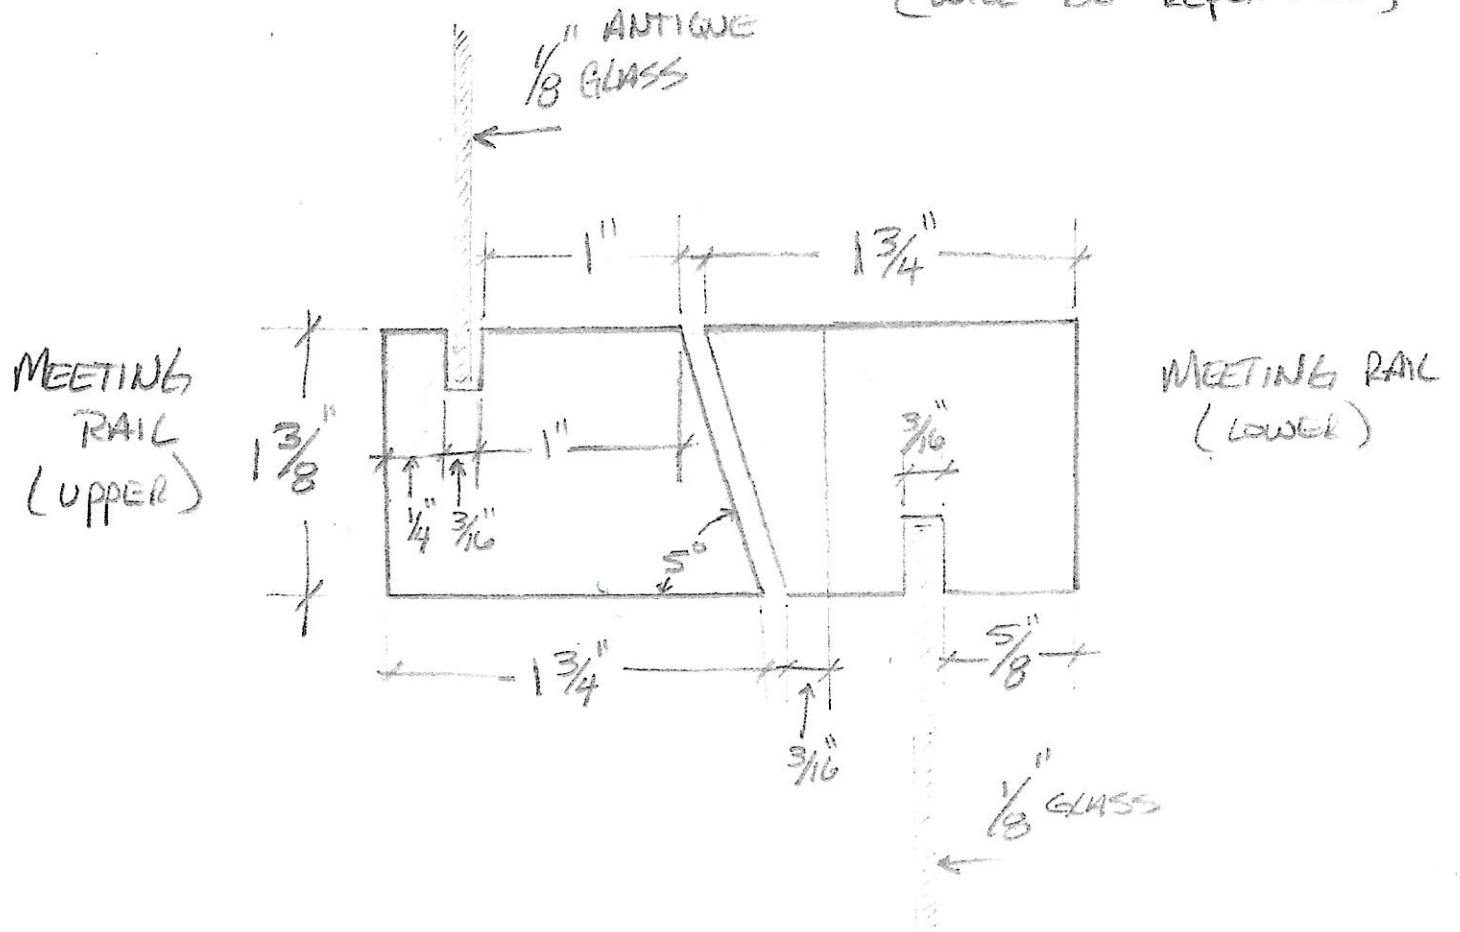 1/8" ANTIQUE
GLASS
1"
1 3/4"
MEETING
RAIL
(UPPER)
1 3/8"
1"
1/4"
3/16"
5°
3/16"
MEETING RAIL
(LOWER)
1 3/4"
3/16"
5/8"
1/8" GLASS